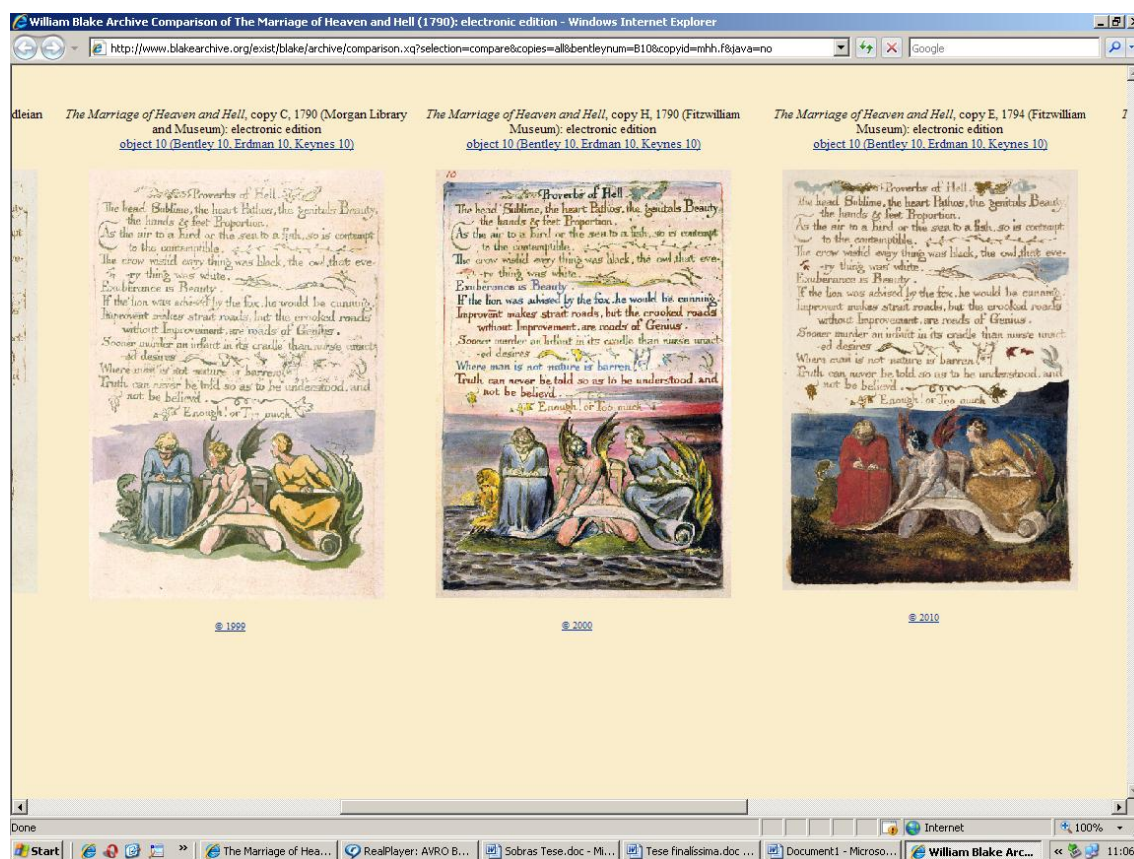 William Blake Archive Comparison of The Marriage of Heaven and Hell (1790): electronic edition - Windows Internet Explorer
http://www.blakearchive.org/exist/blake/archive/comparison.xq?selection=compare&copies=all&bentleynum=B10&copyid=mhh.f&java=no
Google
dleian
The Marriage of Heaven and Hell, copy C, 1790 (Morgan Library
and Museum): electronic edition
object 10 (Bentley 10, Erdman 10, Keynes 10)
Proverbs of Hell.
The head Sublime, the heart Pathos, the genitals Beauty,
the hands & feet Proportion.
As the air to a bird or the sea to a fish, so is contempt
to the contemptible.
The crow wish'd every thing was black, the owl, that eve-
-ry thing was white.
Exuberance is Beauty.
If the lion was advised by the fox, he would be cunning.
Improvement makes strait roads, but the crooked roads
without Improvement, are roads of Genius.
Sooner murder an infant in its cradle than nurse unact-
-ed desires
Where man is not nature is barren.
Truth can never be told so as to be understood, and
not be believd.
Enough! or Too much
© 1999
The Marriage of Heaven and Hell, copy H, 1790 (Fitzwilliam
Museum): electronic edition
object 10 (Bentley 10, Erdman 10, Keynes 10)
10
Proverbs of Hell
The head Sublime, the heart Pathos, the genitals Beauty
the hands & feet Proportion.
As the air to a bird or the sea to a fish, so is contempt
to the contemptible.
The crow wish'd every thing was black, the owl, that eve-
-ry thing was white.
Exuberance is Beauty.
If the lion was advised by the fox, he would be cunning.
Improvent makes strait roads, but the crooked roads
without Improvement, are roads of Genius.
Sooner murder an infant in its cradle than nurse unact-
-ed desires
Where man is not nature is barren.
Truth can never be told so as to be understood, and
not be believd.
Enough! or Too much
© 2000
The Marriage of Heaven and Hell, copy E, 1794 (Fitzwilliam
Museum): electronic edition
object 10 (Bentley 10, Erdman 10, Keynes 10)
Proverbs of Hell.
the head Sublime, the heart Pathos, the genitals Beauty
the hands & feet Proportion.
As the air to a bird or the sea to a fish, so is contempt
to the contemptible.
The crow wish'd every thing was black, the owl, that eve-
-ry thing was white.
Exuberance is Beauty.
If the lion was advised by the fox, he would be cunning.
Improvent makes strait roads, but the crooked roads
without Improvement, are roads of Genius.
Sooner murder an infant in its cradle than nurse unact-
-ed desires
Where man is not nature is barren.
Truth can never be told so as to be understood, and
not be believd.
Enough! or Too much
© 2010
Done
Internet
100%
Start
The Marriage of Hea...
RealPlayer: AVRO B...
Sobras Tese.doc - Mi...
Tese finalíssima.doc ...
Document1 - Microso...
William Blake Arc...
11:06